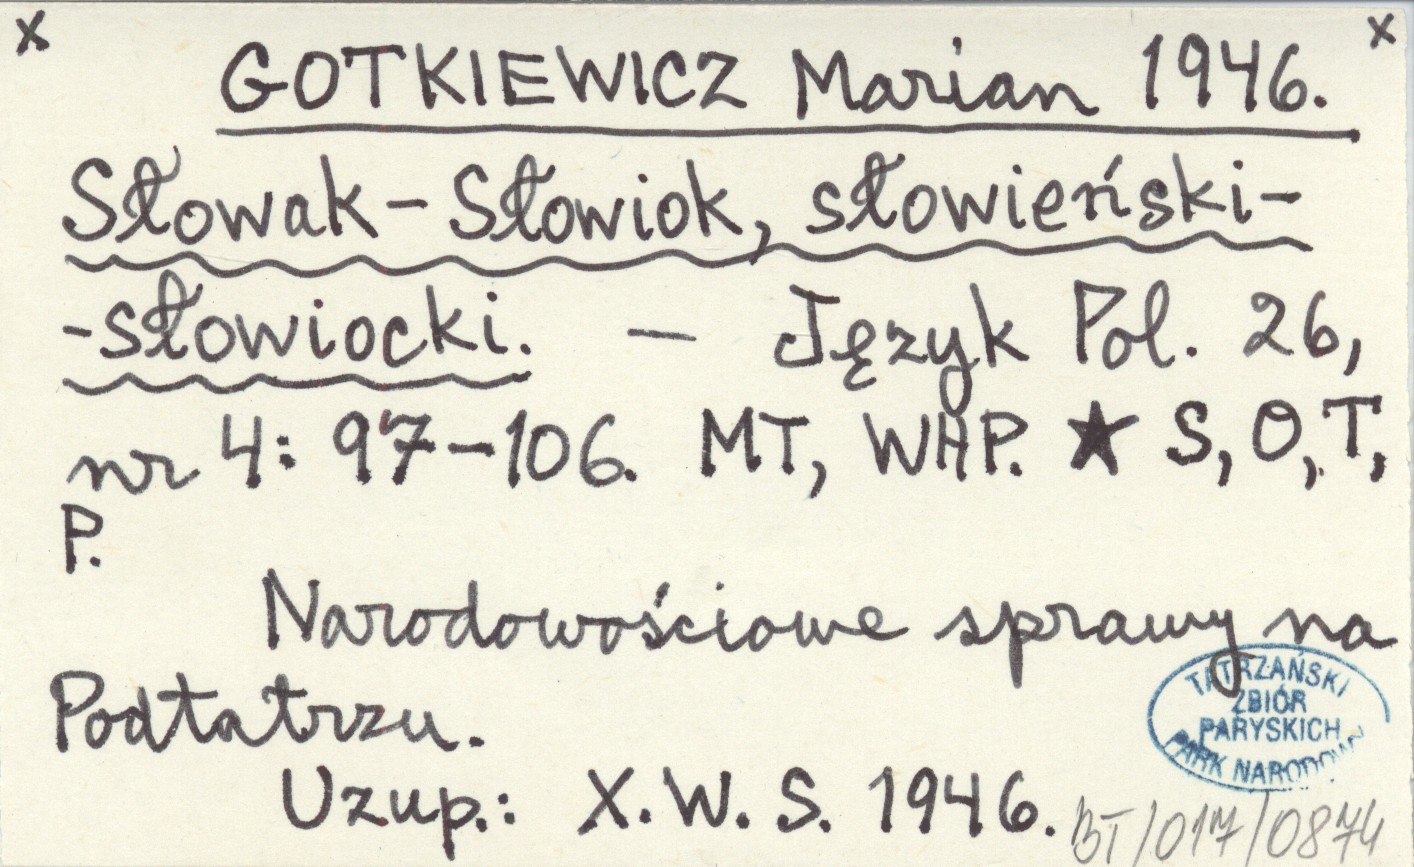 x x
GOTKIEWICZ Marian 1946.
Słowak – Słowiok, słowieński-
-słowiocki. — Język Pol. 26,
nr 4: 97–106. MT, WHP. ★ S, O, T,
P.
Narodowościowe sprawy na
Podtatrzu.
TATRZAŃSKI
ZBIÓR
PARYSKICH
PARK NARODOWY
Uzup.: X. W. S. 1946.
BT/017/0874